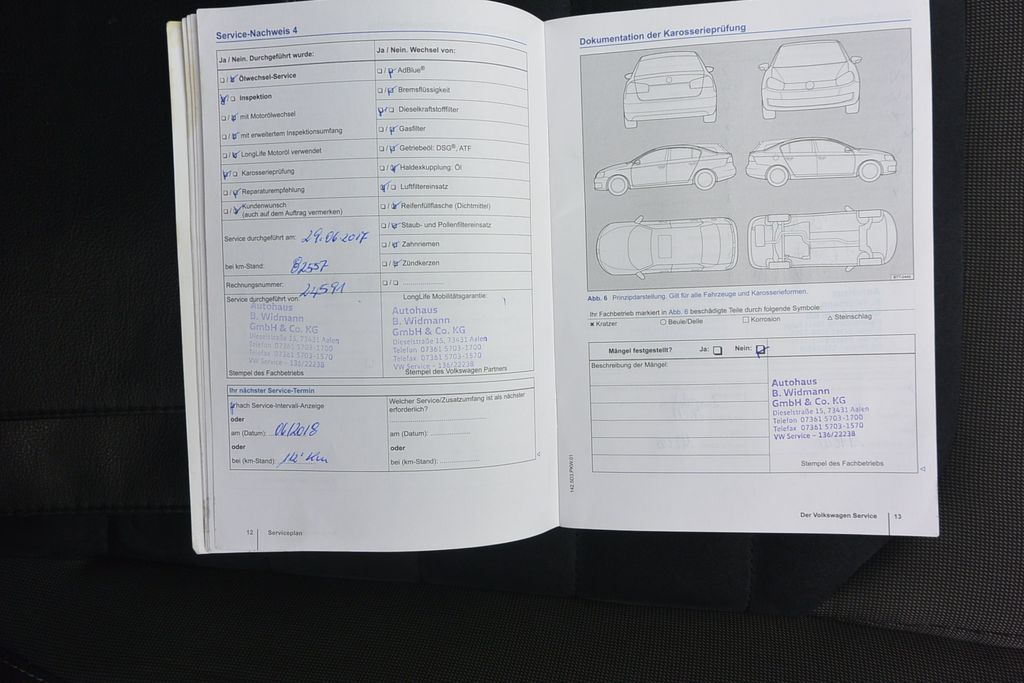 Service-Nachweis 4
Ja / Nein. Durchgeführt wurde:
Ölwechsel-Service
Inspektion
mit Motorölwechsel
mit erweitertem Inspektionsumfang
LongLife Motoröl verwendet
Karosserieprüfung
Reparaturempfehlung
Kundenwunsch
(auch auf dem Auftrag vermerken)
Service durchgeführt am: 29.06.2017
bei km-Stand: 82557
Rechnungsnummer: 24591
Service durchgeführt von:
Autohaus
B. Widmann
GmbH & Co. KG
Dieselstraße 15, 73431 Aalen
Telefon 07361 5703-1700
Telefax 07361 5703-1570
VW Service - 136/22238
Stempel des Fachbetriebs
Ja / Nein. Wechsel von:
AdBlue®
Bremsflüssigkeit
Dieselkraftstofffilter
Gasfilter
Getriebeöl: DSG®, ATF
Haldexkupplung: Öl
Luftfiltereinsatz
Reifenfüllflasche (Dichtmittel)
Staub- und Pollenfiltereinsatz
Zahnriemen
Zündkerzen
LongLife Mobilitätsgarantie:
Autohaus
B. Widmann
GmbH & Co. KG
Dieselstraße 15, 73431 Aalen
Telefon 07361 5703-1700
Telefax 07361 5703-1570
VW Service - 136/22238
Stempel des Volkswagen Partners
Ihr nächster Service-Termin
nach Service-Intervall-Anzeige
oder
am (Datum): 06/2018
oder
bei (km-Stand):
Welcher Service/Zusatzumfang ist als nächster
erforderlich?
am (Datum):
oder
bei (km-Stand):
12 Serviceplan
Dokumentation der Karosserieprüfung
Abb. 6 Prinzipdarstellung. Gilt für alle Fahrzeuge und Karosserieformen.
Ihr Fachbetrieb markiert in Abb. 6 beschädigte Teile durch folgende Symbole:
Kratzer Beule/Delle Korrosion Steinschlag
Mängel festgestellt? Ja: Nein:
Beschreibung der Mängel:
Autohaus
B. Widmann
GmbH & Co. KG
Dieselstraße 15, 73431 Aalen
Telefon 07361 5703-1700
Telefax 07361 5703-1570
VW Service - 136/22238
Stempel des Fachbetriebs
Der Volkswagen Service 13